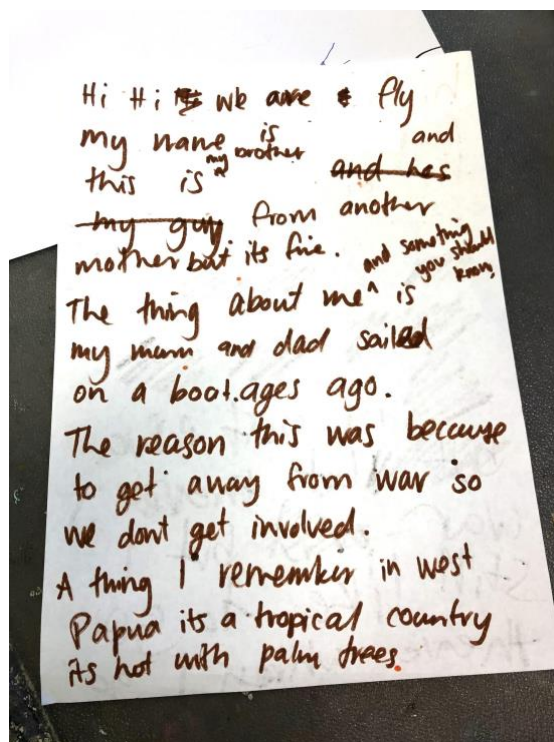 Hi Hi we are fly
my name is and
this is my brother and hes
my guy from another
mother but its fine.
The thing about me and something you should know is
my mum and dad sailed
on a boat.ages ago.
The reason this was because
to get away from war so
we dont get involved.
A thing I remember in west
Papua its a tropical country
its hot with palm trees.